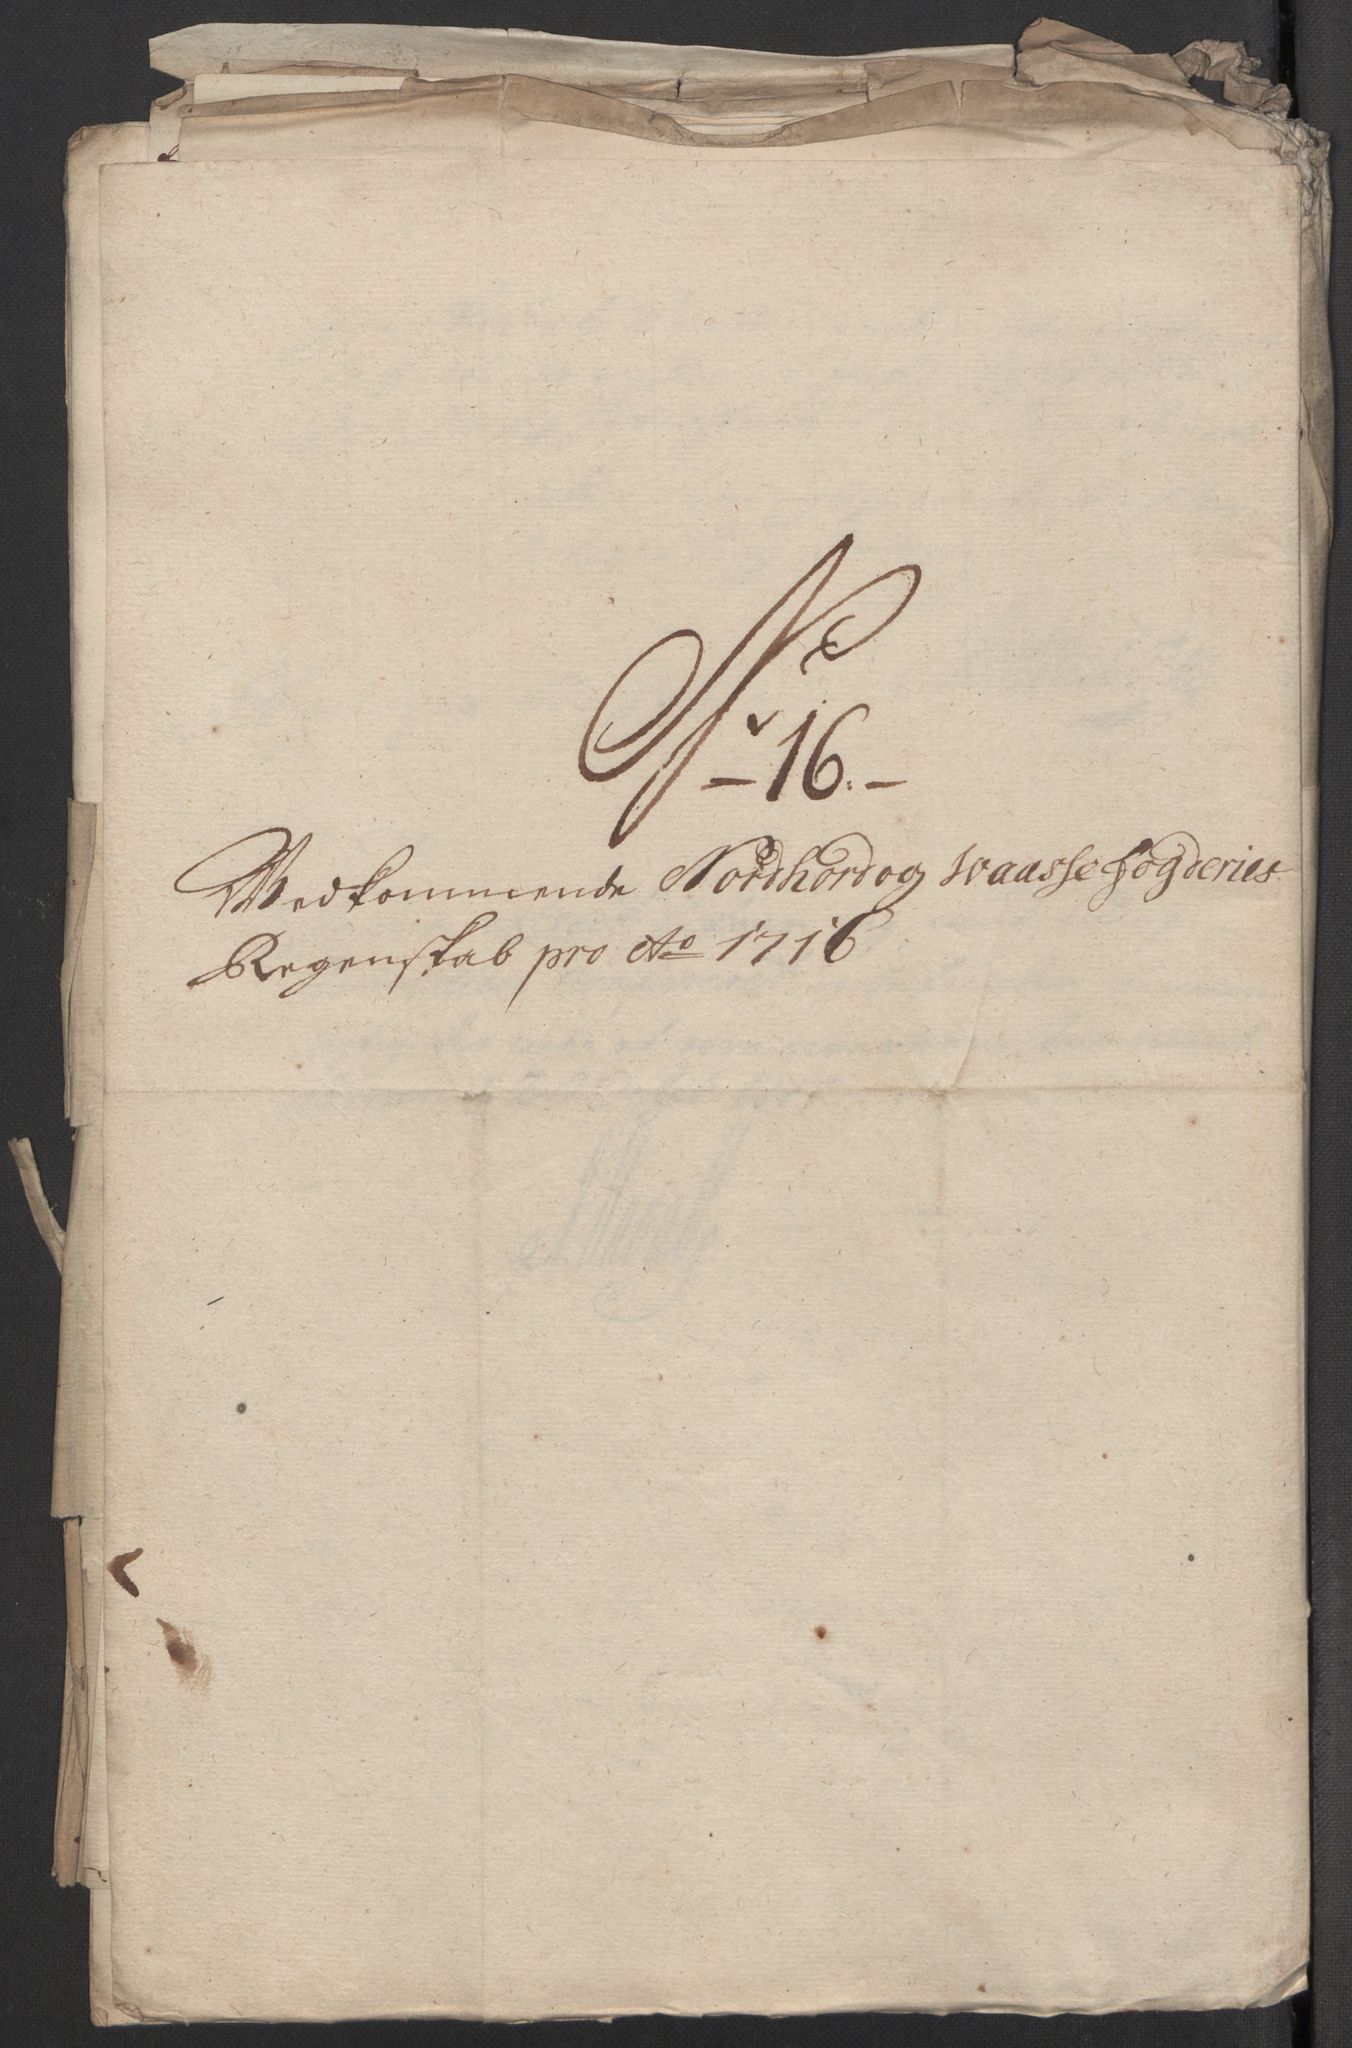 No
16.
Vedkommende Nordhord og Waasse fogderies
Regenskab pro Ao 1716